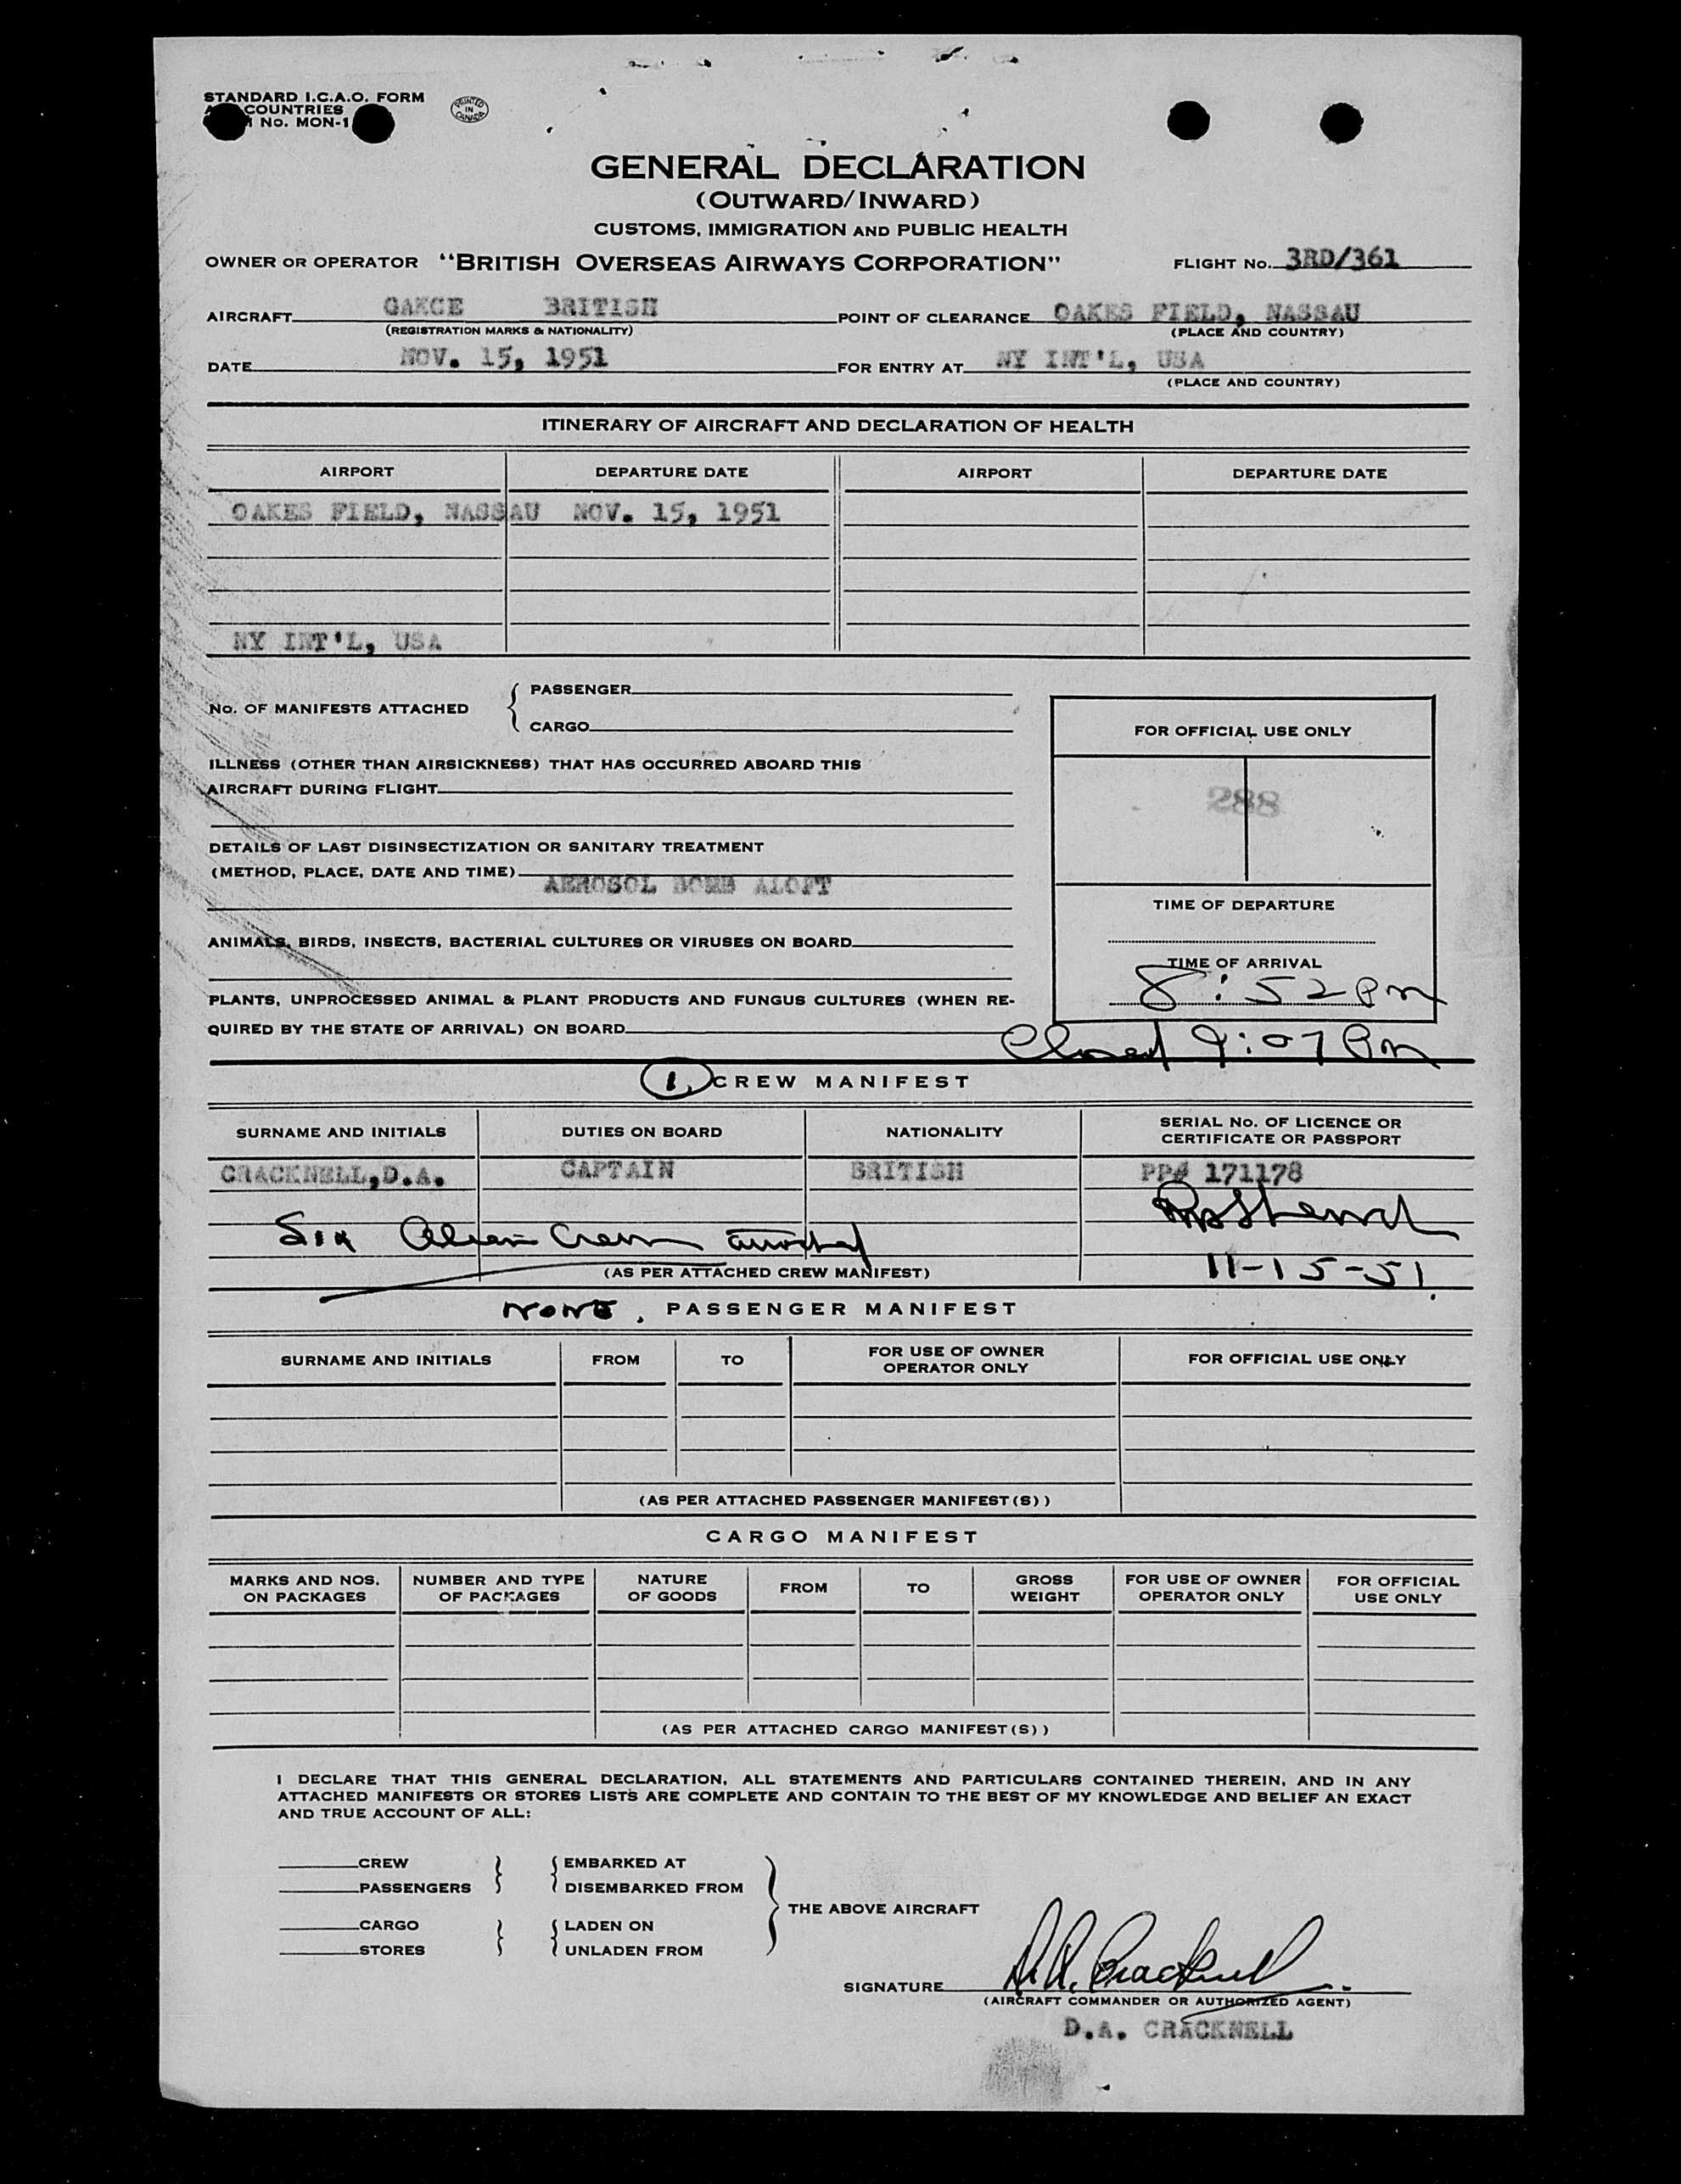 STANDARD I.C.A.O. FORM
COUNTRIES
No. MON-1
PRINTED IN CANADA
GENERAL DECLARATION
(OUTWARD/INWARD)
CUSTOMS, IMMIGRATION AND PUBLIC HEALTH
OWNER OR OPERATOR "BRITISH OVERSEAS AIRWAYS CORPORATION" FLIGHT No. 3RD/361
AIRCRAFT GAKCE BRITISH POINT OF CLEARANCE OAKES FIELD, NASSAU
(REGISTRATION MARKS & NATIONALITY) (PLACE AND COUNTRY)
DATE NOV. 15, 1951 FOR ENTRY AT NY INT'L, USA
(PLACE AND COUNTRY)
ITINERARY OF AIRCRAFT AND DECLARATION OF HEALTH
AIRPORT DEPARTURE DATE AIRPORT DEPARTURE DATE
OAKES FIELD, NASSAU NOV. 15, 1951
NY INT'L, USA
No. OF MANIFESTS ATTACHED
PASSENGER
CARGO
FOR OFFICIAL USE ONLY
ILLNESS (OTHER THAN AIRSICKNESS) THAT HAS OCCURRED ABOARD THIS
AIRCRAFT DURING FLIGHT
288
DETAILS OF LAST DISINSECTIZATION OR SANITARY TREATMENT
(METHOD, PLACE, DATE AND TIME)
AEROSOL BOMB ALOFT
TIME OF DEPARTURE
ANIMALS, BIRDS, INSECTS, BACTERIAL CULTURES OR VIRUSES ON BOARD
TIME OF ARRIVAL
8:52 PM
PLANTS, UNPROCESSED ANIMAL & PLANT PRODUCTS AND FUNGUS CULTURES (WHEN RE-
QUIRED BY THE STATE OF ARRIVAL) ON BOARD
Closed 9:07 PM
1. CREW MANIFEST
SURNAME AND INITIALS DUTIES ON BOARD NATIONALITY SERIAL No. OF LICENCE OR
CERTIFICATE OR PASSPORT
CRACKNELL,D.A. CAPTAIN BRITISH PP# 171178
Six Alien Crew attached
(AS PER ATTACHED CREW MANIFEST) 11-15-51
NONE. PASSENGER MANIFEST
SURNAME AND INITIALS FROM TO FOR USE OF OWNER
OPERATOR ONLY FOR OFFICIAL USE ONLY
(AS PER ATTACHED PASSENGER MANIFEST(S))
CARGO MANIFEST
MARKS AND NOS.
ON PACKAGES NUMBER AND TYPE
OF PACKAGES NATURE
OF GOODS FROM TO GROSS
WEIGHT FOR USE OF OWNER
OPERATOR ONLY FOR OFFICIAL
USE ONLY
(AS PER ATTACHED CARGO MANIFEST(S))
I DECLARE THAT THIS GENERAL DECLARATION, ALL STATEMENTS AND PARTICULARS CONTAINED THEREIN, AND IN ANY
ATTACHED MANIFESTS OR STORES LISTS ARE COMPLETE AND CONTAIN TO THE BEST OF MY KNOWLEDGE AND BELIEF AN EXACT
AND TRUE ACCOUNT OF ALL:
CREW EMBARKED AT
PASSENGERS DISEMBARKED FROM
THE ABOVE AIRCRAFT
CARGO LADEN ON
STORES UNLADEN FROM
SIGNATURE D.A. Cracknell
(AIRCRAFT COMMANDER OR AUTHORIZED AGENT)
D.A. CRACKNELL